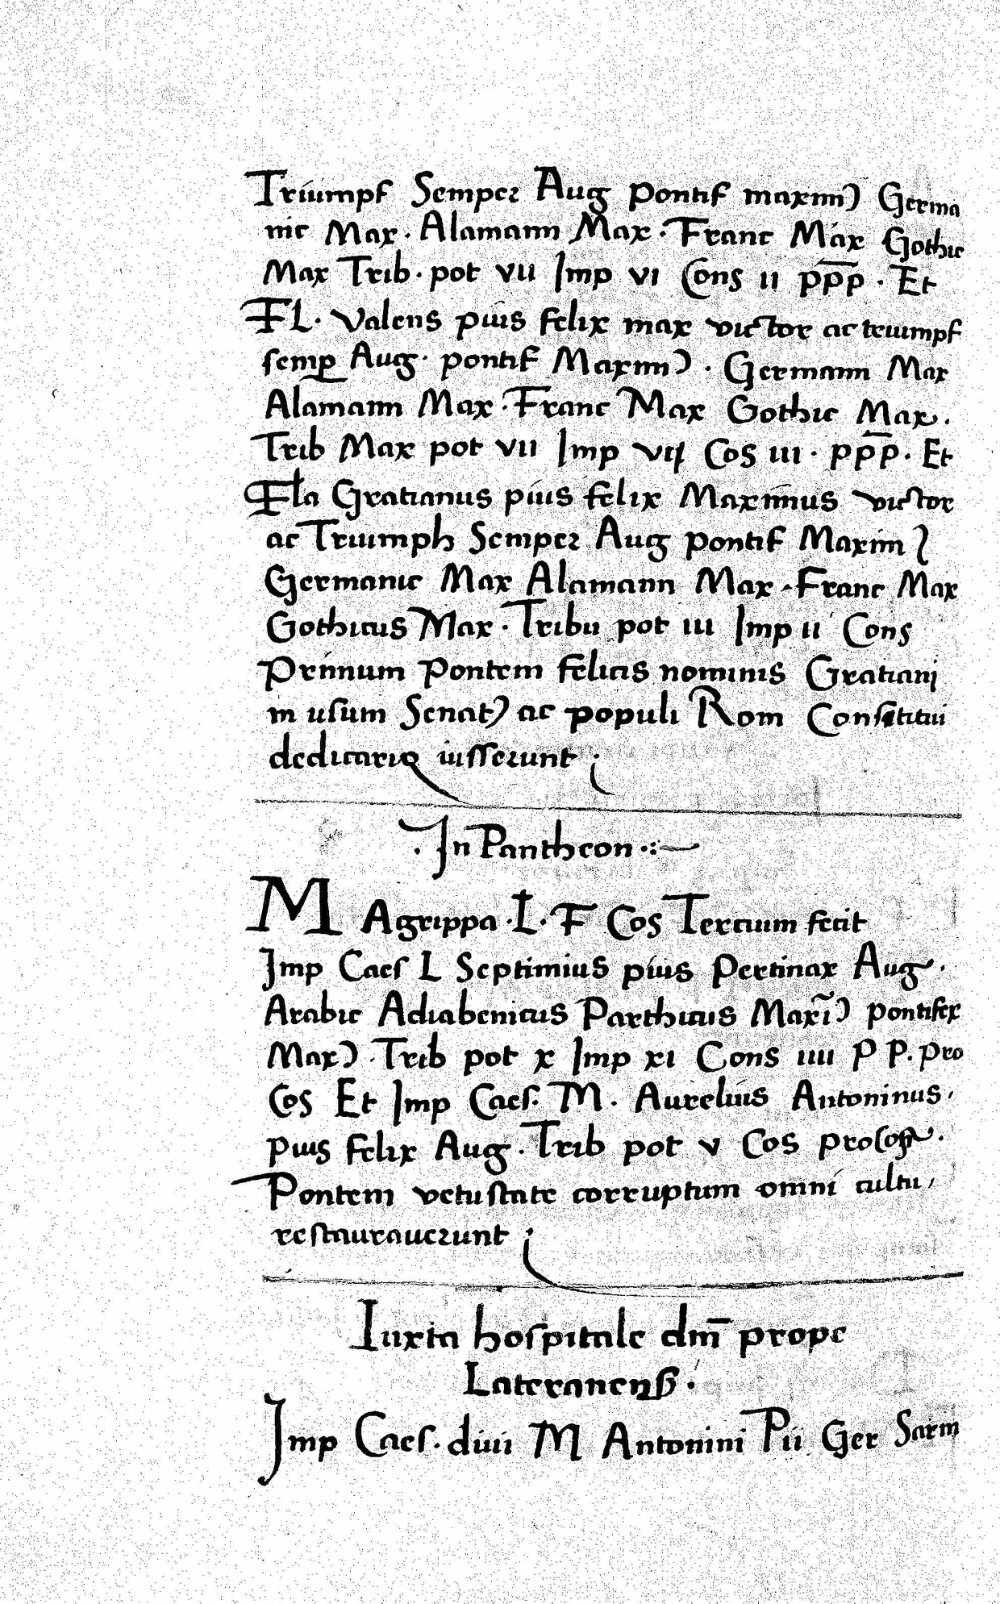 Triumpf Semper Aug pontif maxim) Germa
nic Max. Alamann Max. Franc Max Gothic
Max Trib. pot VII Imp VI Cons II p̅p̅p. Et
FL. Valens pius felix max victor ac triumpf
semp Aug. pontif Maxim). Germann Max
Alamann Max. Franc Max Gothic Max.
Trib Max pot VII Imp VII Cos III. p̅p̅p. Et
Fla Gratianus pius felix Maximus victor
ac Triumph Semper Aug pontif Maxim)
Germanic Max Alamann Max. Franc Max
Gothicus Max. Tribu pot III Imp II Cons
Primum Pontem felicis nominis Gratiani
in usum Senat) ac populi Rom Constitui
dedicariq iusserunt;
. In Pantheon .:~
M Agrippa. L. F Cos Tercium fecit
Imp Caes L Septimius pius Pertinax Aug.
Arabic Adiabenicus Parthicus Maxi̅) pontifex
Max). Trib pot X Imp XI Cons IIII P P. pro
Cos Et Imp Caes. M. Aurelius Antoninus.
pius felix Aug. Trib pot V Cos procos.
Pontem vetustate corruptum omni cultu,
restauraverunt;
Iuxta hospitale dm̅ prope
Lateranens.
Imp Caes. divi M Antonini Pii Ger Sarm